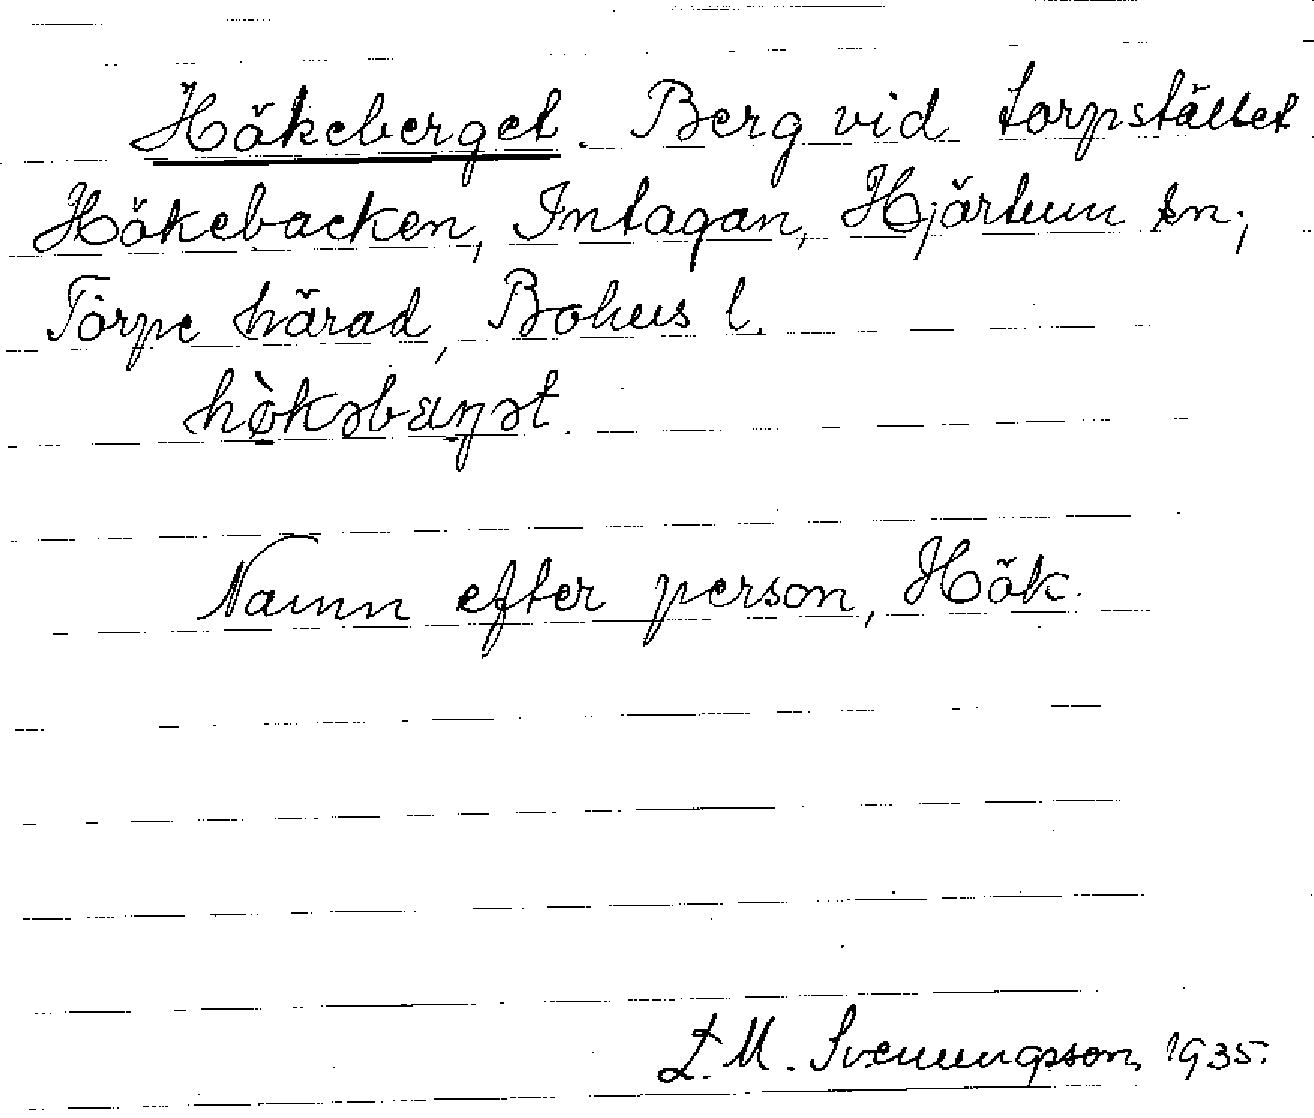 Hökeberget. Berg vid torpstället
Hökebacken, Intagan, Hjärtum sn,
Torpe härad, Bohus l.
Namn efter person, Hök.
L. M. Svenungsson, 1935.